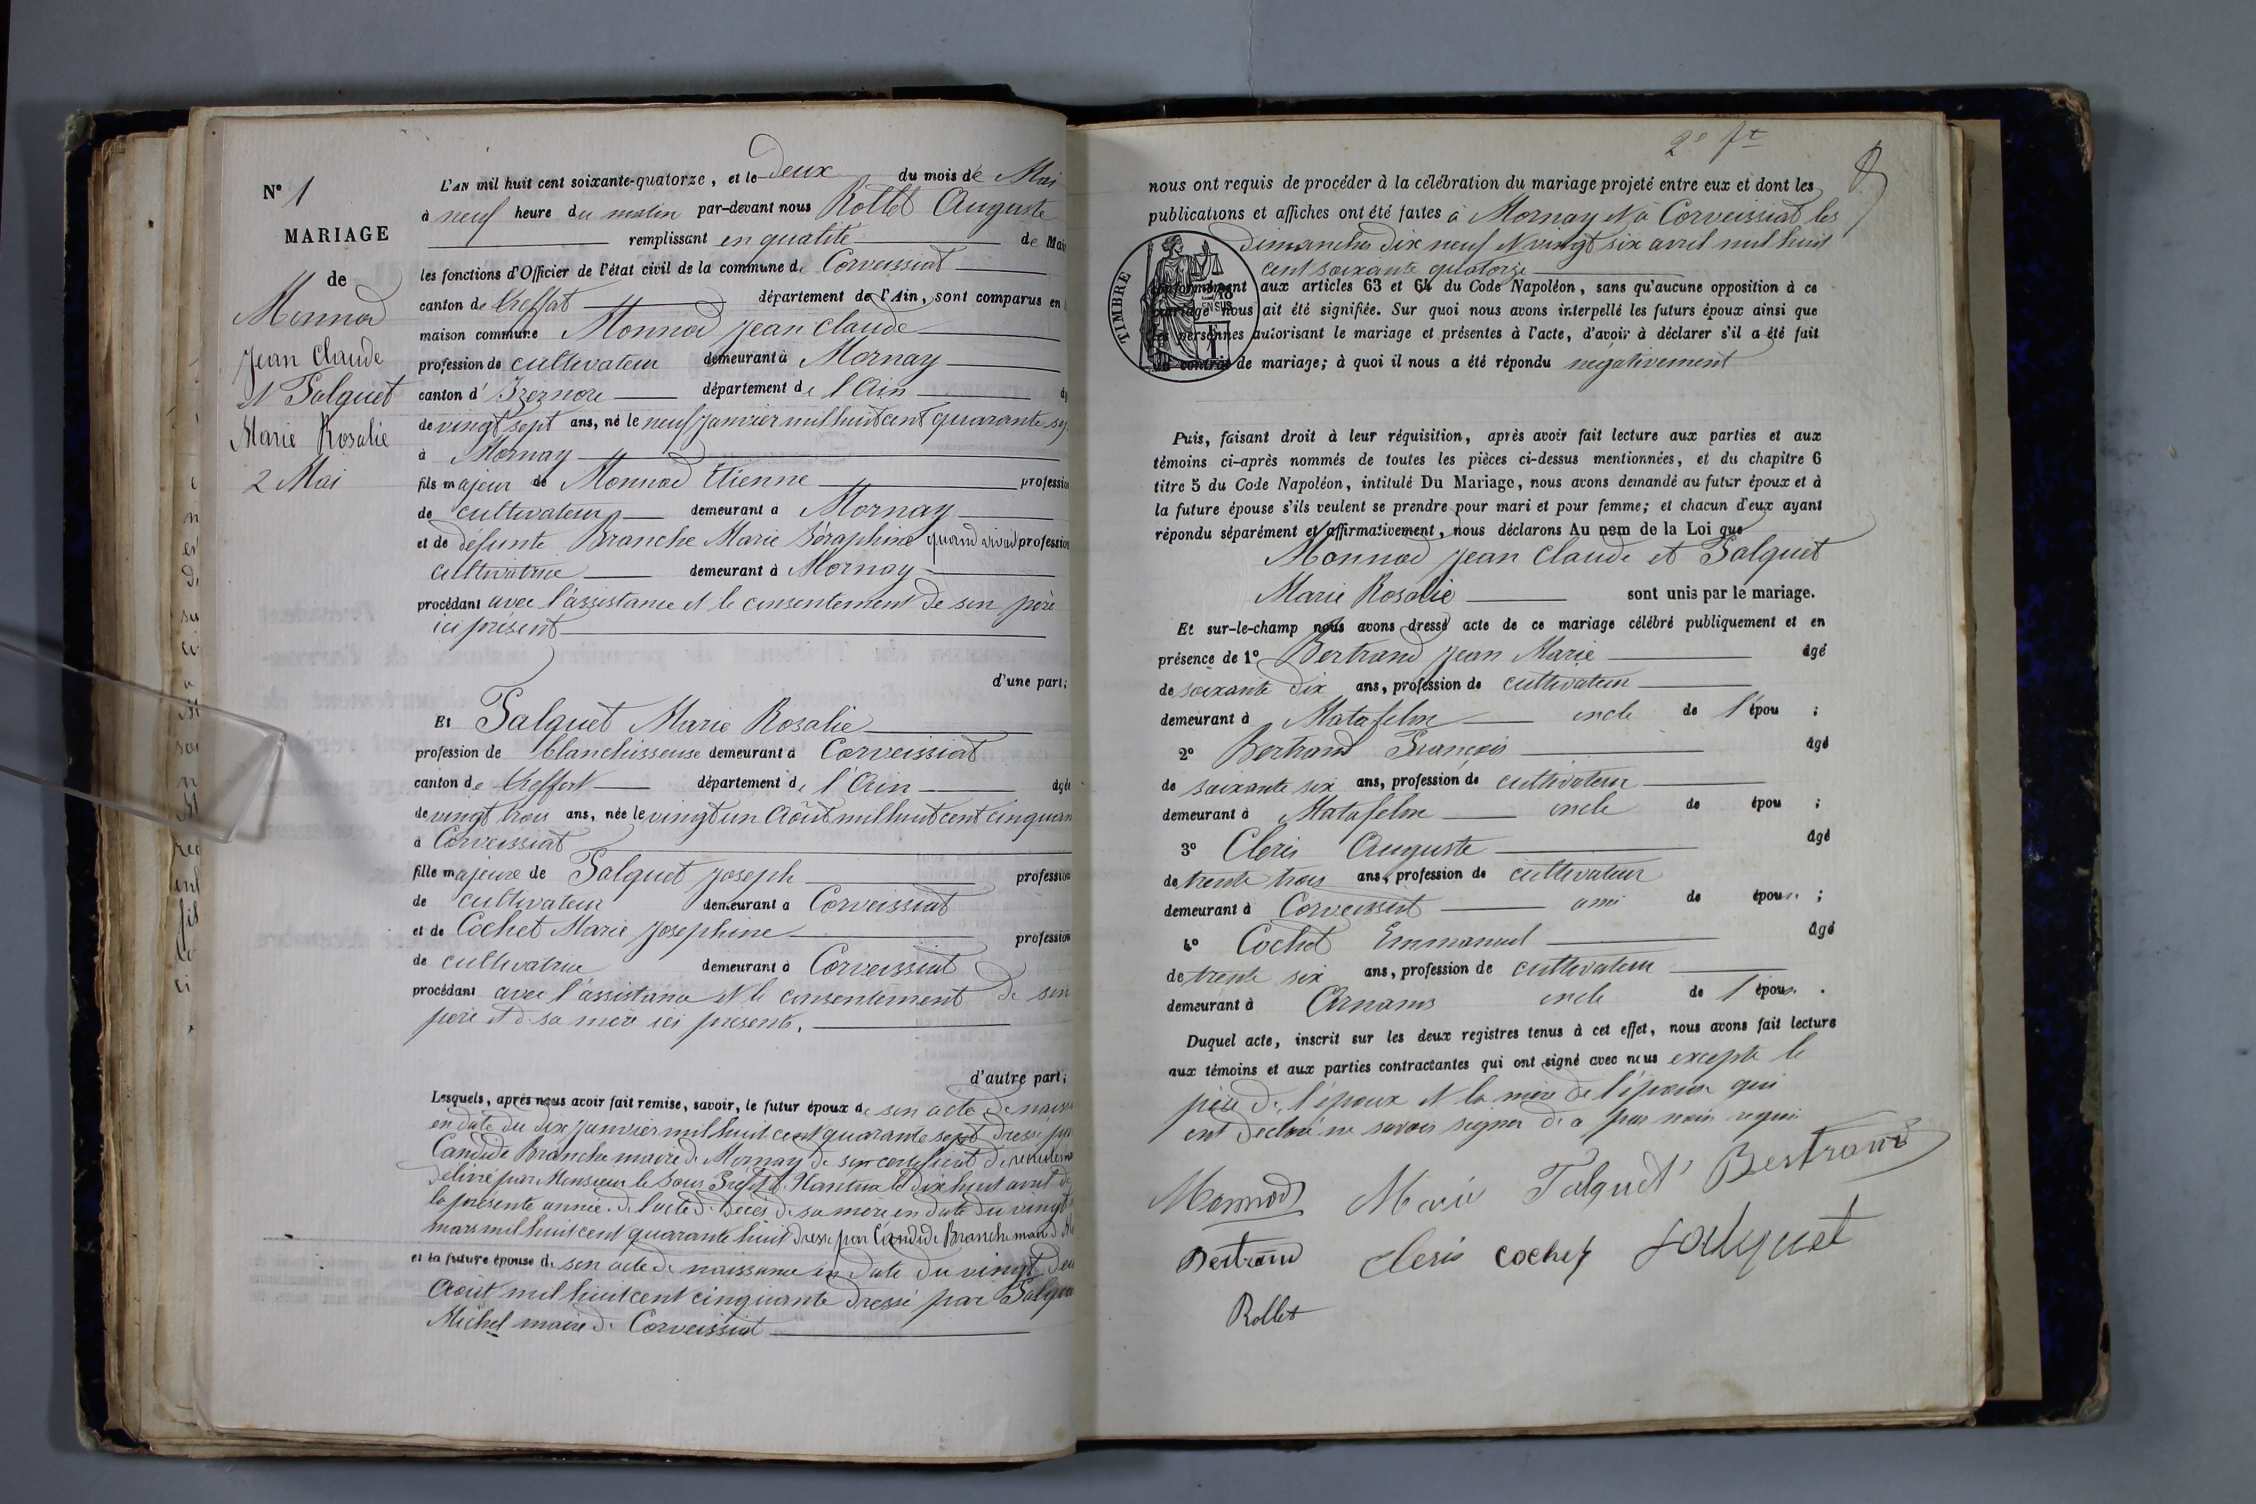 N° 1
MARIAGE
de
Monnod
Jean Claude
et Salquet
Marie Rosalie
2 Mai
L'AN mil huit cent soixante-quatorze, et le deux du mois de Mai
à neuf heure du matin par-devant nous Rollet Auguste
remplissant en qualité de Mai
les fonctions d'Officier de l'état civil de la commune de Corveissiat
canton de Treffort département de l'Ain, sont comparus en
maison commune Monnod Jean Claude
profession de cultivateur demeurant à Mornay
canton d' Izernore département de l'Ain
de vingt sept ans, né le neuf janvier mil huit cent quarante sep
à Mornay
fils majeur de Monnod Etienne profession
de cultivateur demeurant à Mornay
et de defunte Branche Marie Séraphine quand vivait profession
cultivatrice demeurant à Mornay
procédant avec l'assistance et le consentement de son père
ici présent
d'une part;
Et Salquet Marie Rosalie
profession de blanchisseuse demeurant à Corveissiat
canton de Treffort département de l'Ain âgée
de vingt trois ans, née le vingt un Août mil huit cent cinquan
à Corveissiat
fille majeure de Salquet Joseph profession
de cultivateur demeurant à Corveissiat
et de Cochet Marie Josephine profession
de cultivatrice demeurant à Corveissiat
procédant avec l'assistance et le consentement de son
père et de sa mère ici présents.
d'autre part;
Lesquels, après nous avoir fait remise, savoir, le futur époux de son acte de naiss
en date du dix janvier mil huit cent quarante sept dressé par
Candide Branche maire de Mornay de son certificat de
délivré par Monsieur le Sous Préfet de Nantua le dix huit avril de
la présente année. de l'acte de décès de sa mère en date du vingt
mars mil huit cent quarante huit dressé par Candide Branche maire de
et la future épouse de son acte de naissance en date du vingt deu
Août mil huit cent cinquante dressé par Salque
Michel maire de Corveissiat
2e ft
8
nous ont requis de procéder à la célébration du mariage projeté entre eux et dont les
publications et affiches ont été faites à Mornay et à Corveissiat les
dimanches dix neuf et vingt six avril mil huit
cent soixante quatorze
TIMBRE
conformément aux articles 63 et 64 du Code Napoléon, sans qu'aucune opposition à ce
mariage nous ait été signifiée. Sur quoi nous avons interpellé les futurs époux ainsi que
les personnes autorisant le mariage et présentes à l'acte, d'avoir à déclarer s'il a été fait
un contrat de mariage; à quoi il nous a été répondu négativement
Puis, faisant droit à leur réquisition, après avoir fait lecture aux parties et aux
témoins ci-après nommés de toutes les pièces ci-dessus mentionnées, et du chapitre 6
titre 5 du Code Napoléon, intitulé Du Mariage, nous avons demandé au futur époux et à
la future épouse s'ils veulent se prendre pour mari et pour femme; et chacun d'eux ayant
répondu séparément et affirmativement, nous déclarons Au nom de la Loi que
Monnod Jean Claude et Salquet
Marie Rosalie sont unis par le mariage.
Et sur-le-champ nous avons dressé acte de ce mariage célébré publiquement et en
présence de 1° Bertrand Jean Marie âgé
de soixante dix ans, profession de cultivateur
demeurant à Matafelon oncle de l'épou ;
2° Bertrand François âgé
de soixante six ans, profession de cultivateur
demeurant à Matafelon oncle de épou ;
3° Cleris Auguste âgé
de trente trois ans, profession de cultivateur
demeurant à Corveissiat ami de époux ;
4° Cochet Emmanuel âgé
de trente six ans, profession de cultivateur
demeurant à Cornans oncle de l'épous .
Duquel acte, inscrit sur les deux registres tenus à cet effet, nous avons fait lecture
aux témoins et aux parties contractantes qui ont signé avec nous excepté le
père de l'époux et la mère de l'épouse qui
ont déclaré ne savoir signer de a par nous requis
Monnod Marie Salquet Bertrand
Bertrand Cleris cochet salquet
Rollet